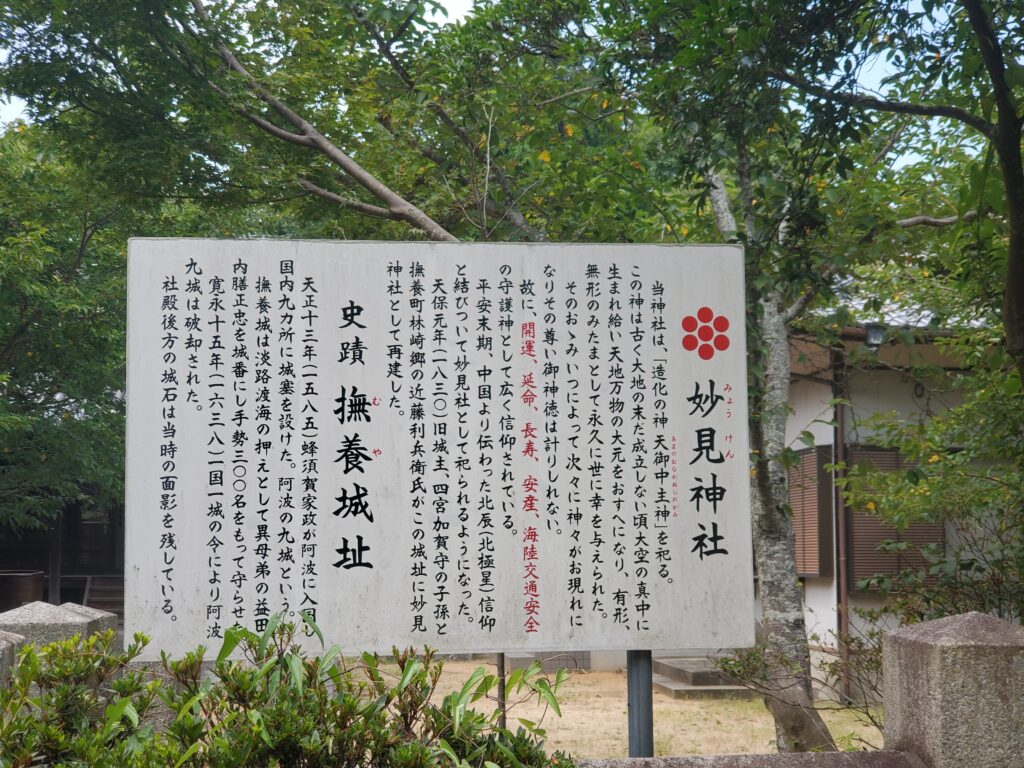 妙見神社
みょうけん
当神社は、「造化の神 天御中主神」を祀る。
あまのおなかぬしのかみ
この神は古く大地の末だ成立しない頃大空の真中に
生まれ給い天地万物の大元をおすへになり、有形、
無形のみたまとして永久に世に幸を与えられた。
そのおゝみいつによって次々に神々がお現れに
なりその尊い御神徳は計りしれない。
故に、開運、延命、長寿、安産、海陸交通安全
の守護神として広く信仰されている。
平安末期、中国より伝わった北辰(北極星)信仰
と結びついて妙見社として祀られるようになった。
天保元年(一八三〇)旧城主、四宮加賀守の子孫と
撫養町林崎郷の近藤利兵衛氏がこの城址に妙見
神社として再建した。
史蹟 撫養城址
むや
天正十三年(一五八五)蜂須賀家政が阿波に入国し
国内九カ所に城塞を設けた。阿波の九城という。
撫養城は淡路渡海の押えとして異母弟の益田
内膳正忠を城番にし手勢三〇〇名をもって守らせ
寛永十五年(一六三八)一国一城の令により阿波
九城は破却された。
社殿後方の城石は当時の面影を残している。